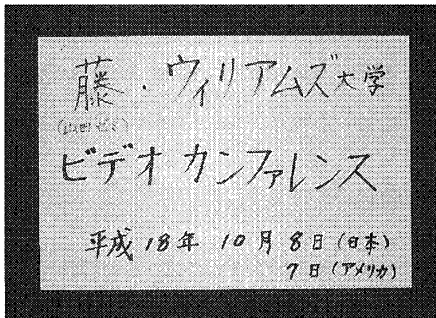 藤・ウィリアムズ大学
ビデオカンファレンス
平成18年 10月8日(日本)
7日(アメリカ)